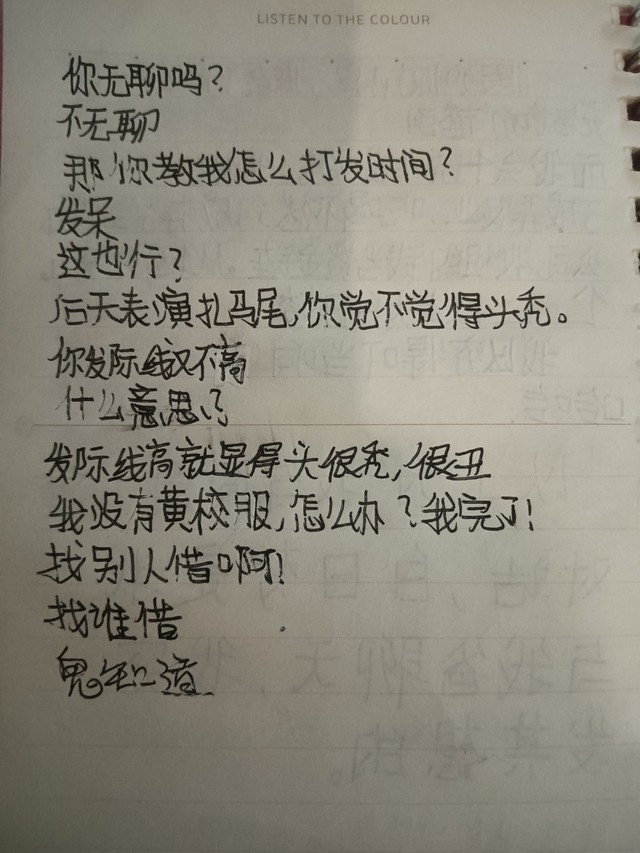 LISTEN TO THE COLOUR
你无聊吗？
不无聊
那你教我怎么打发时间？
发呆
这也行？
后天表演扎马尾，你觉不觉得头秃。
你发际线又不高
什么意思？
发际线高就显得头很秃，很丑
我没有黄校服，怎么办？我完了！
找别人借啊！
找谁借
鬼知道